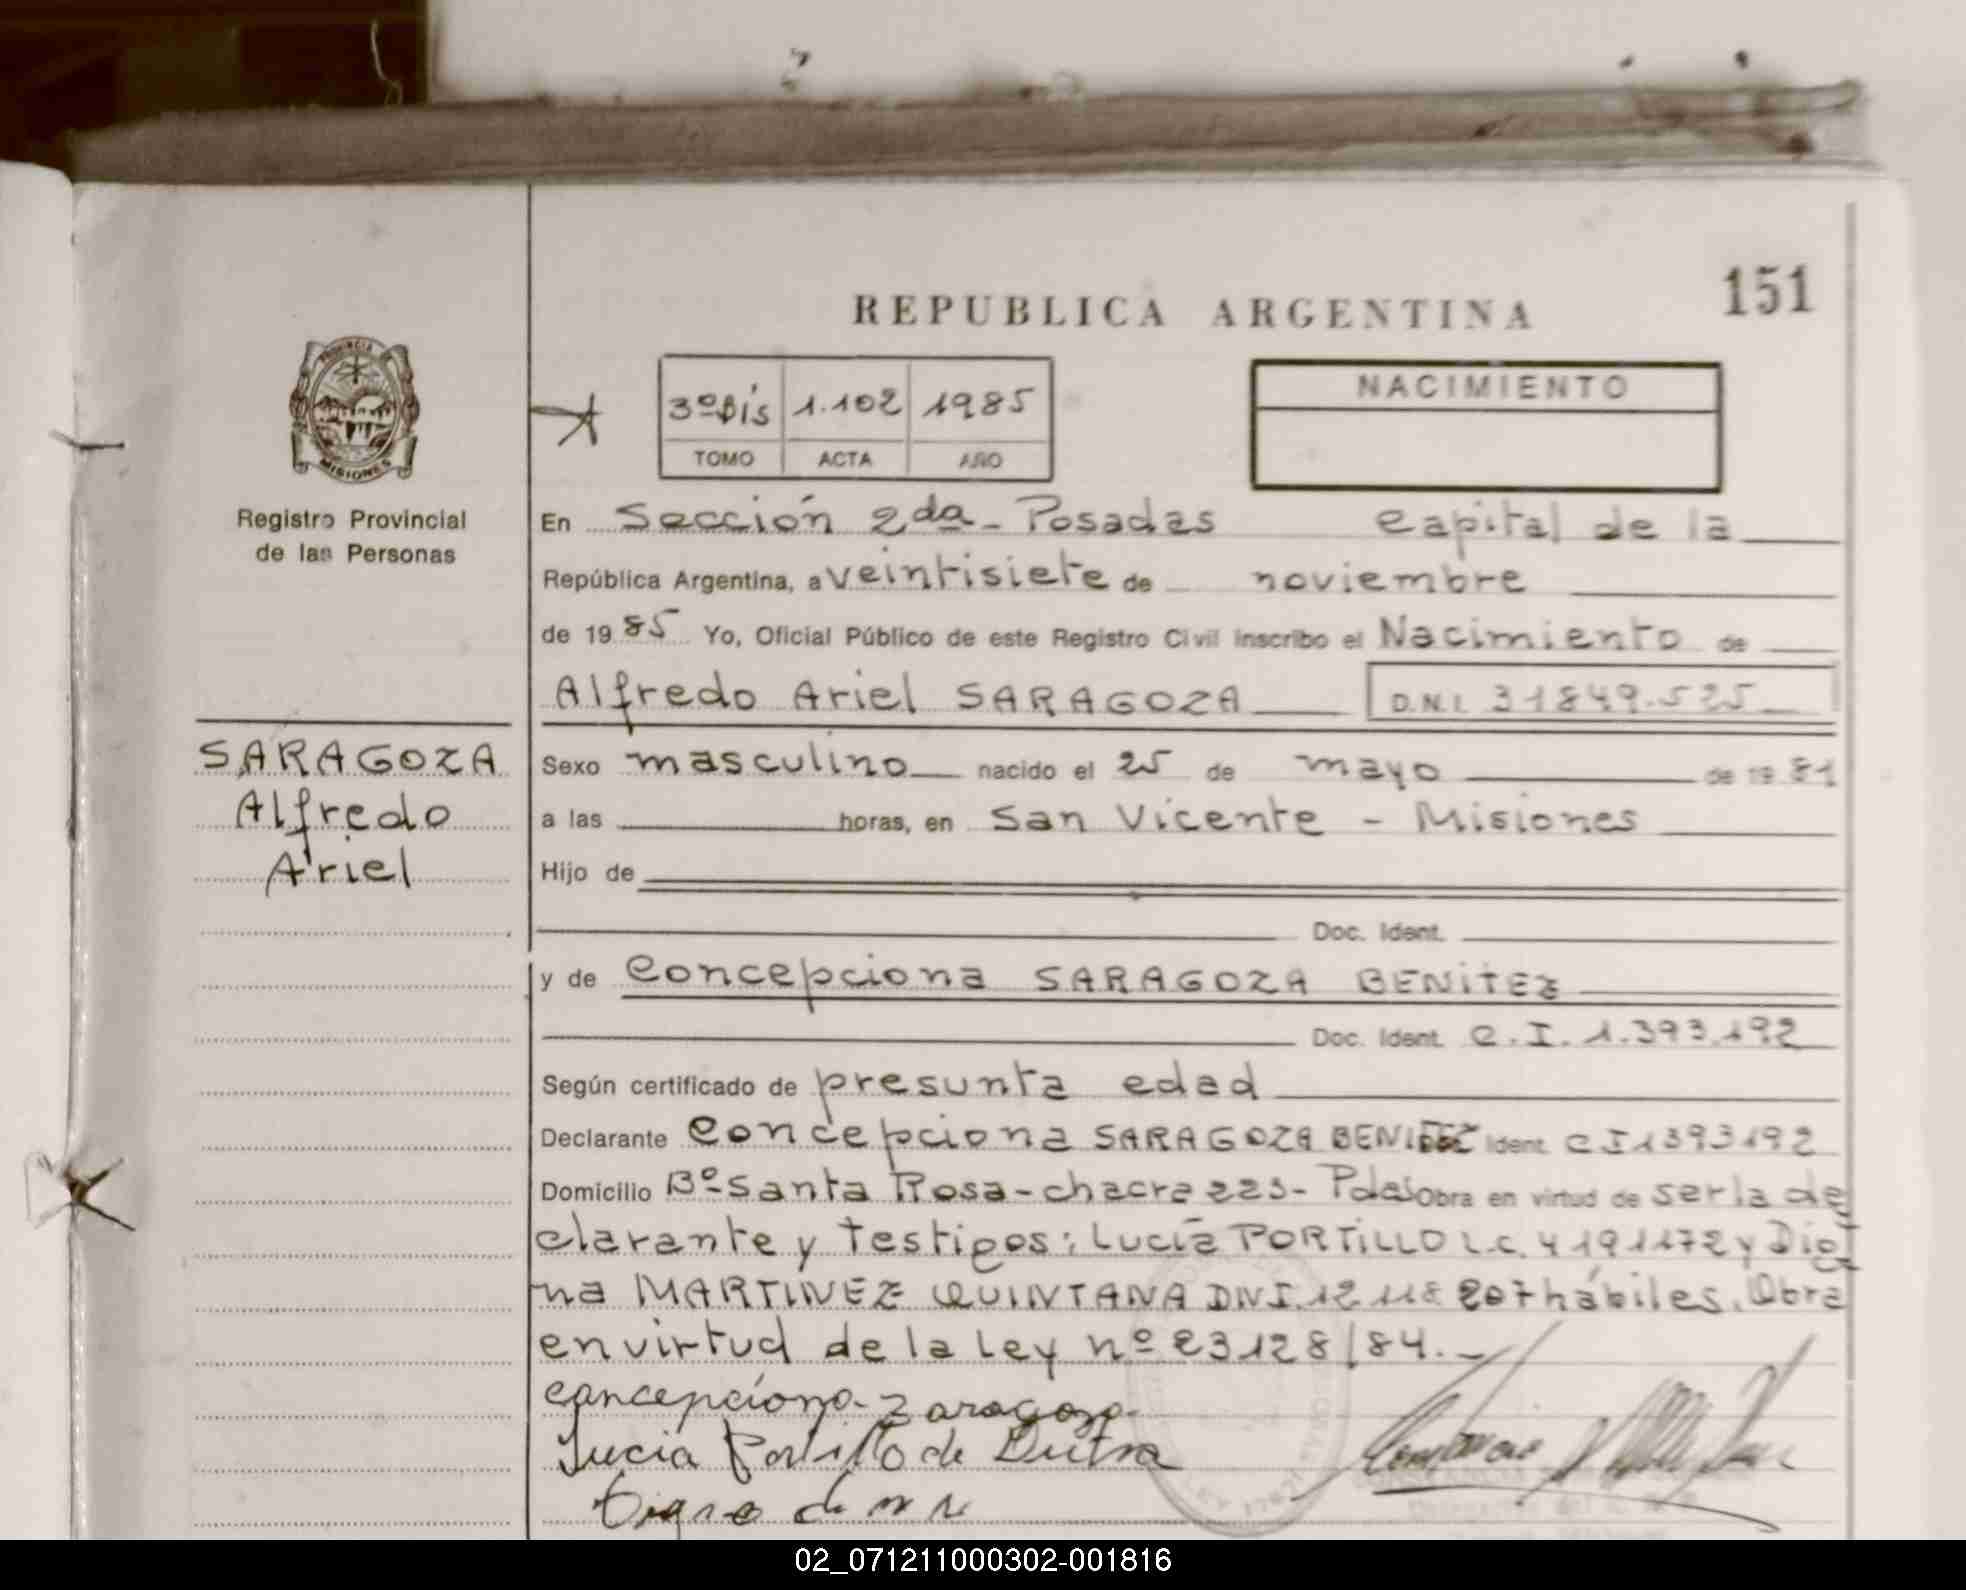 151
REPUBLICA ARGENTINA
PROVINCIA DE
MISIONES
Registro Provincial
de las Personas
3º Bis 1.102 1985
TOMO ACTA AÑO
NACIMIENTO
En Sección 2da - Posadas Capital de la
República Argentina, a veintisiete de noviembre
de 1985 Yo, Oficial Público de este Registro Civil inscribo el Nacimiento de
Alfredo Ariel SARAGOZA D.N.I. 31849.525
SARAGOZA
Alfredo
Ariel
Sexo masculino nacido el 25 de mayo de 1981
a las horas, en San Vicente - Misiones
Hijo de
Doc. Ident.
y de Concepciona SARAGOZA BENITEZ
Doc. Ident. C.I. 1.393.192
Según certificado de presunta edad
Declarante Concepciona SARAGOZA BENITEZ Ident. C I 1393192
Domicilio Bº Santa Rosa - chacra 223 - Pdas Obra en virtud de ser la de
clarante y testigos: Lucía PORTILLO L.C. 4191172 y Dig
na MARTINEZ QUINTANA DNI. 12 118 207 hábiles. Obra
en virtud de la Ley nº 23128/84.-
concepciona zaragoza
Lucia Portillo de Dutra
02_071211000302-001816